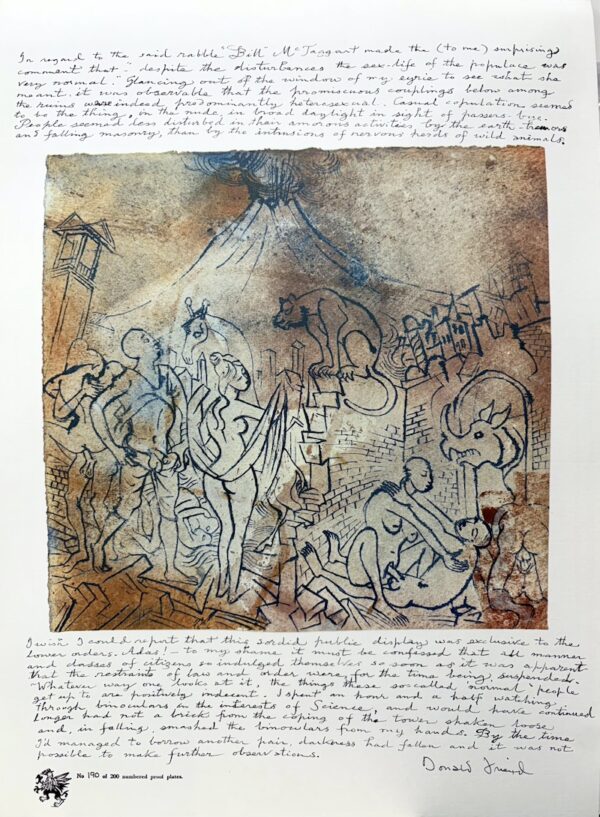 In regard to the said rabble "Bill" McTaggart made the (to me) surprising
comment that "despite the disturbances the sex-life of the populace was
very normal". Glancing out of the window of my eyrie to see what she
meant it was observable that the promiscuous couplings below among
the ruins were indeed predominantly heterosexual. Casual copulation seemed
to be the thing, in the nude, in broad daylight in sight of passers-by.
People seemed less disturbed in their amorous activities by the earth-tremors
and falling masonry, than by the intrusions of nervous herds of wild animals.
I wish I could report that this sordid public display was exclusive to the
Lower orders. Alas! – to my shame it must be confessed that all manner
and classes of citizens so indulged themselves so soon as it was apparent
that the restraints of law and order were for the time being suspended.
"Whatever way one looks at it, the things these so-called 'normal' people
get up to are positively indecent. I spent an hour and a half watching
through binoculars in the interests of Science, and would have continued
longer had not a brick from the coping of the tower shaken loose
and, in falling, smashed the binoculars from my hands. By the time
I'd managed to borrow another pair, darkness had fallen and it was not
possible to make further observations.
Donald Friend
No 190 of 200 numbered proof plates.